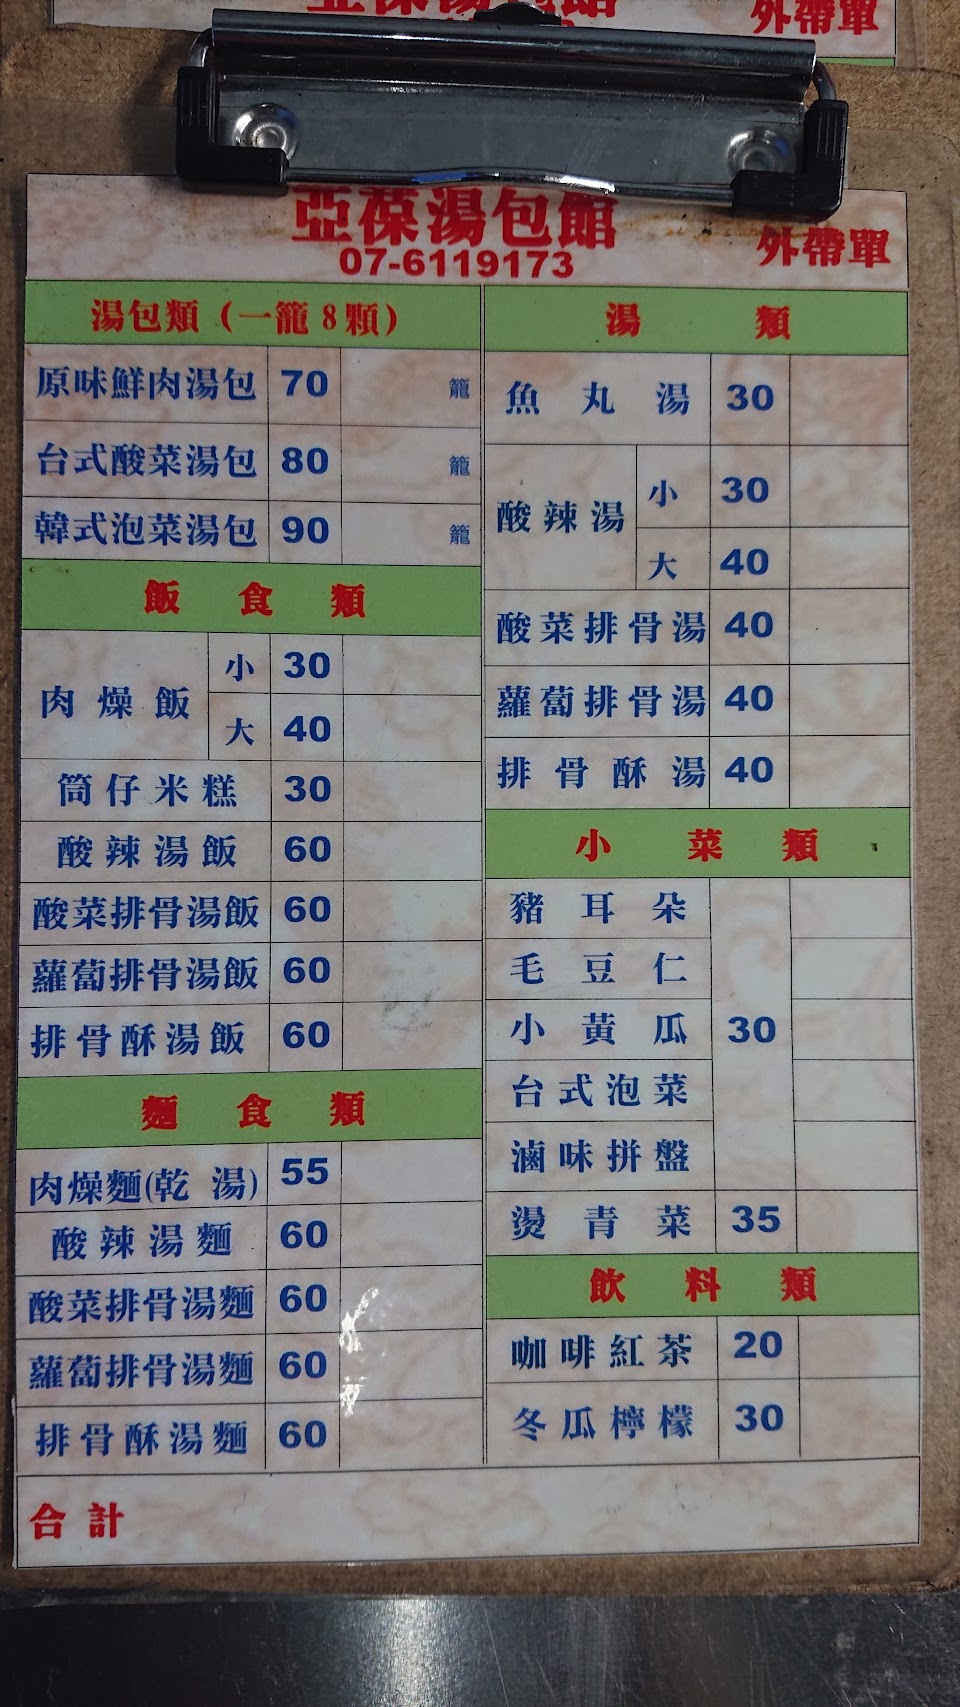 亞葆湯包館
外帶單
07-6119173
湯包類(一籠8顆)
原味鮮肉湯包 70 籠
台式酸菜湯包 80 籠
韓式泡菜湯包 90 籠
飯食類
肉燥飯 小 30
大 40
筒仔米糕 30
酸辣湯飯 60
酸菜排骨湯飯 60
蘿蔔排骨湯飯 60
排骨酥湯飯 60
麵食類
肉燥麵(乾 湯) 55
酸辣湯麵 60
酸菜排骨湯麵 60
蘿蔔排骨湯麵 60
排骨酥湯麵 60
湯類
魚丸湯 30
酸辣湯 小 30
大 40
酸菜排骨湯 40
蘿蔔排骨湯 40
排骨酥湯 40
小菜類
豬耳朵
毛豆仁
小黃瓜 30
台式泡菜
滷味拼盤
燙青菜 35
飲料類
咖啡紅茶 20
冬瓜檸檬 30
合計